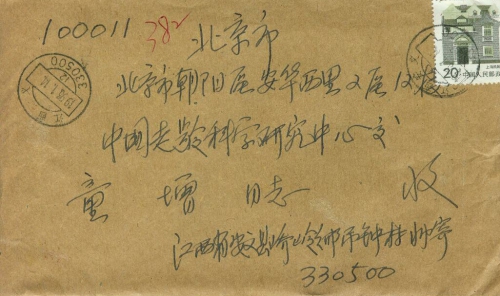 100011
382
北京市
北京市朝阳区安华西里2区12楼
中国老龄科学研究中心交
童增同志 收
江西省安义县 邮币钟 寄
330500
330500
20
中国人民邮政